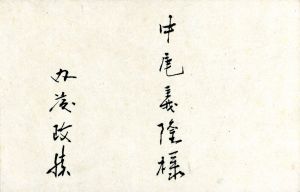 中尾義隆様
丸茂政